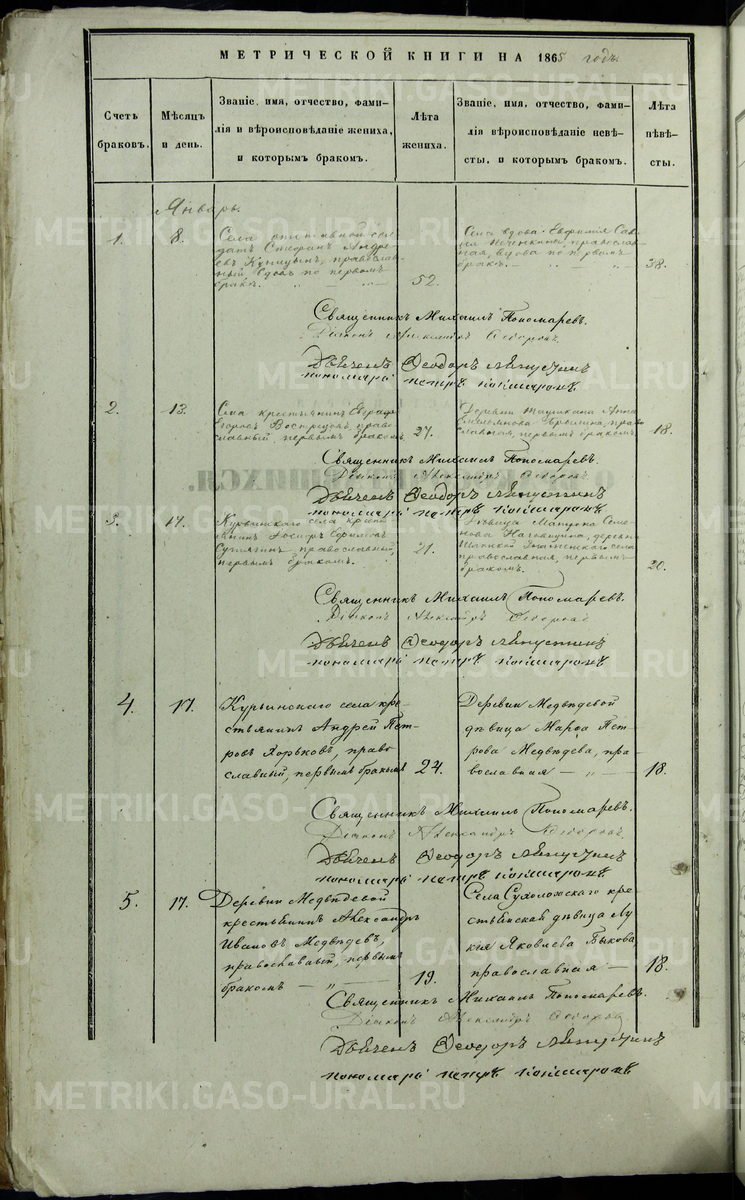 МЕТРИЧЕСКОЙ КНИГИ НА 1865 годъ
Счетъ браковъ.
Мѣсяцъ и день.
Званіе, имя, отчество, фами-
лія и вѣроисповѣданіе жениха,
и которымъ бракомъ.
Лѣта жениха.
Званіе, имя, отчество, фами-
лія вѣроисповѣданіе невѣ-
сты, и которымъ бракомъ.
Лѣта невѣсты.
Январь.
1.
8.
Села
датъ Стефанъ Андре-
евъ Куницынъ, православ-
ный вдовъ по первомъ
бракѣ.
52.
Села вдова Евфимія Сав-
ина православ-
ная, вдова по первомъ
бракѣ.
38.
Священникъ Михаилъ Пономаревъ.
Діаконъ Александръ Ѳедоровъ
Дьячекъ Ѳеодоръ
пономарь петръ
2.
13.
Села крестьянинъ
Егоровъ Вострецовъ, право-
славный первымъ бракомъ
27.
Деревни Анна
православная, первымъ бракомъ
18.
Священникъ Михаилъ Пономаревъ.
Діаконъ Александръ Ѳедоровъ
Дьячекъ Ѳеодоръ
пономарь петръ
3.
17.
Курьинскаго села кресть-
янинъ Іосифъ
православный,
первымъ бракомъ.
21.
дѣвица Матрона Семе-
нова деревни
Знаменскаго села
православная, первымъ
бракомъ.
20.
Священникъ Михаилъ Пономаревъ.
Діаконъ Александръ Ѳедоровъ
Дьячекъ Ѳеодоръ
пономарь петръ
4.
17.
Курьинскаго села кре-
стьянинъ Андрей Пет-
ровъ Хорьковъ, право-
славный, первымъ бракомъ
24.
Деревни Медвѣдевой
дѣвица Марѳа Пет-
рова Медвѣдева, пра-
вославная — „ —
18.
Священникъ Михаилъ Пономаревъ.
Діаконъ Александръ Ѳедоровъ
Дьячекъ Ѳеодоръ
пономарь петръ
5.
17.
Деревни Медвѣдевой
крестьянинъ Александръ
Ивановъ Медвѣдевъ,
православный, первымъ
бракомъ — „ —
19.
Села Сухоложскаго кре-
стьянская дѣвица Лу-
кія Яковлева Быкова,
православная —
18.
Священникъ Михаилъ Пономаревъ.
Діаконъ Александръ Ѳедоровъ
Дьячекъ Ѳеодоръ
пономарь петръ
METRIKI.GASO-URAL.RU